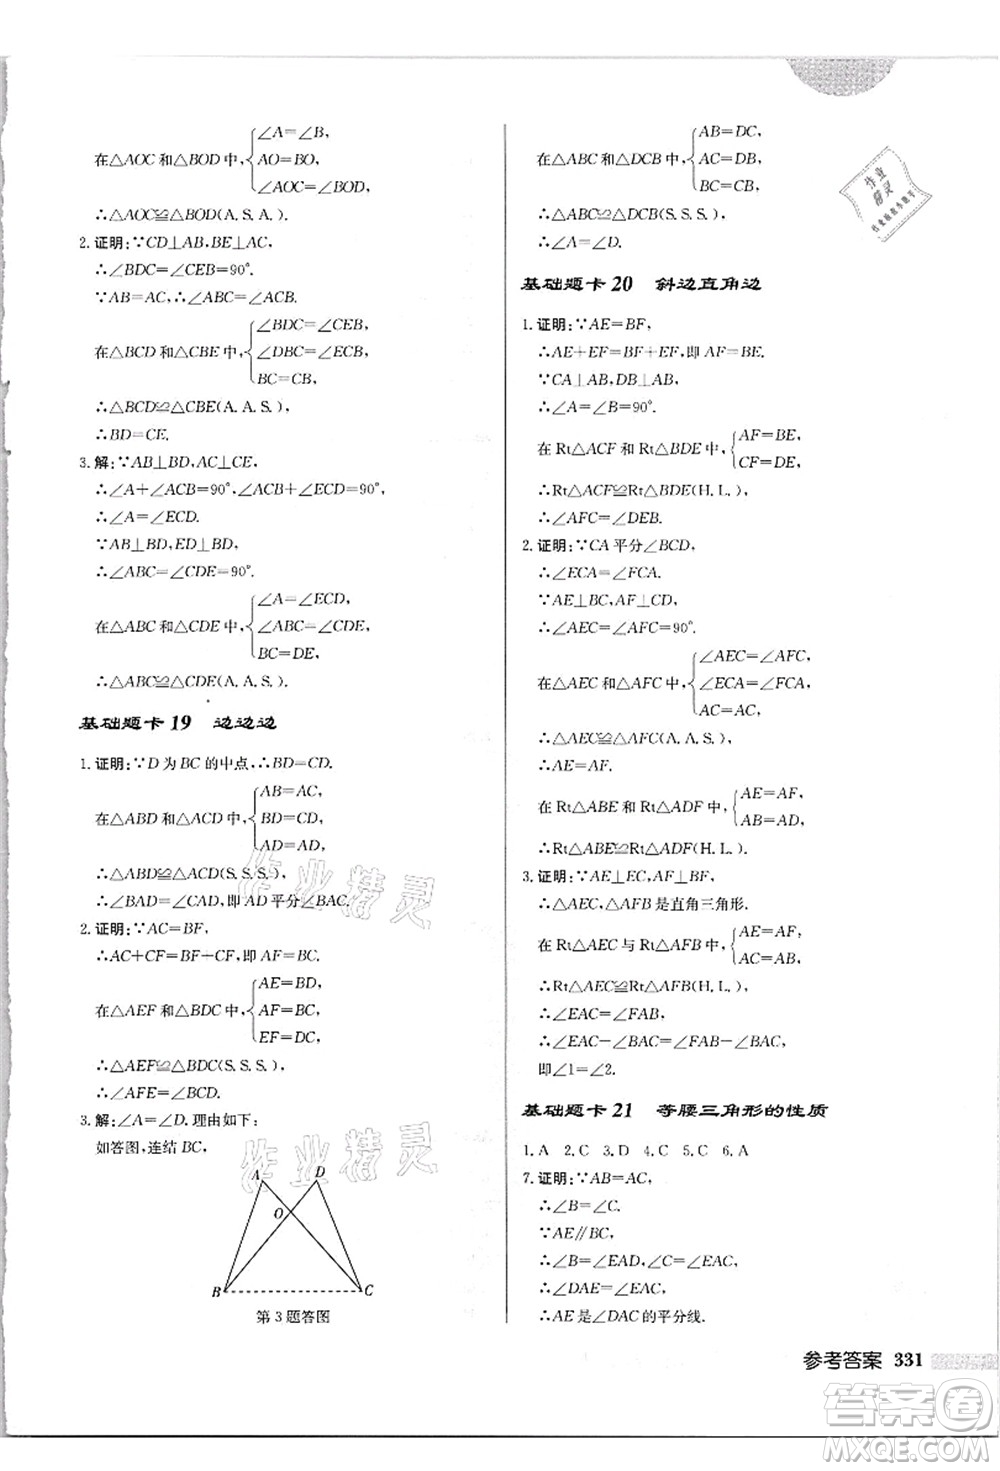 ∠A=∠B,
在△AOC和△BOD中,{AO=BO,
∠AOC=∠BOD,
∴△AOC≌△BOD(A.S.A.).
2.证明:∵CD⊥AB,BE⊥AC,
∴∠BDC=∠CEB=90°.
∵AB=AC,∴∠ABC=∠ACB.
∠BDC=∠CEB,
在△BCD和△CBE中,{∠DBC=∠ECB,
BC=CB,
∴△BCD≌△CBE(A.A.S.),
∴BD=CE.
3.解:∵AB⊥BD,AC⊥CE,
∴∠A+∠ACB=90°,∠ACB+∠ECD=90°,
∴∠A=∠ECD.
∵AB⊥BD,ED⊥BD,
∴∠ABC=∠CDE=90°.
∠A=∠ECD,
在△ABC和△CDE中,{∠ABC=∠CDE,
BC=DE,
∴△ABC≌△CDE(A.A.S.).
基础题卡19 边边边
1.证明:∵D为BC的中点,∴BD=CD.
AB=AC,
在△ABD和△ACD中,{BD=CD,
AD=AD,
∴△ABD≌△ACD(S.S.S.),
∴∠BAD=∠CAD,即AD平分∠BAC.
2.证明:∵AC=BF,
∴AC+CF=BF+CF,即AF=BC.
AE=BD,
在△AEF和△BDC中,{AF=BC,
EF=DC,
∴△AEF≌△BDC(S.S.S.),
∴∠AFE=∠BCD.
3.解:∠A=∠D.理由如下:
如答图,连结BC,
A D
O
B C
第3题答图
AB=DC,
在△ABC和△DCB中,{AC=DB,
BC=CB,
∴△ABC≌△DCB(S.S.S.),
∴∠A=∠D.
基础题卡20 斜边直角边
1.证明:∵AE=BF,
∴AE+EF=BF+EF,即AF=BE.
∵CA⊥AB,DB⊥AB,
∴∠A=∠B=90°.
在Rt△ACF和Rt△BDE中,{AF=BE,
CF=DE,
∴Rt△ACF≌Rt△BDE(H.L.),
∴∠AFC=∠DEB.
2.证明:∵CA平分∠BCD,
∴∠ECA=∠FCA.
∵AE⊥BC,AF⊥CD,
∴∠AEC=∠AFC=90°.
∠AEC=∠AFC,
在△AEC和△AFC中,{∠ECA=∠FCA,
AC=AC,
∴△AEC≌△AFC(A.A.S.),
∴AE=AF.
在Rt△ABE和Rt△ADF中,{AE=AF,
AB=AD,
∴Rt△ABE≌Rt△ADF(H.L.).
3.证明:∵AE⊥EC,AF⊥BF,
∴△AEC,△AFB是直角三角形.
在Rt△AEC与Rt△AFB中,{AE=AF,
AC=AB,
∴Rt△AEC≌Rt△AFB(H.L.),
∴∠EAC=∠FAB,
∴∠EAC-∠BAC=∠FAB-∠BAC,
即∠1=∠2.
基础题卡21 等腰三角形的性质
1.A 2.C 3.D 4.C 5.C 6.A
7.证明:∵AB=AC,
∴∠B=∠C.
∵AE∥BC,
∴∠B=∠EAD,∠C=∠CAE,
∴∠DAE=∠CAE,
∴AE是∠DAC的平分线.
参考答案 331
作业精灵
作业精灵
作业精灵
答案圈
MXQE.COM